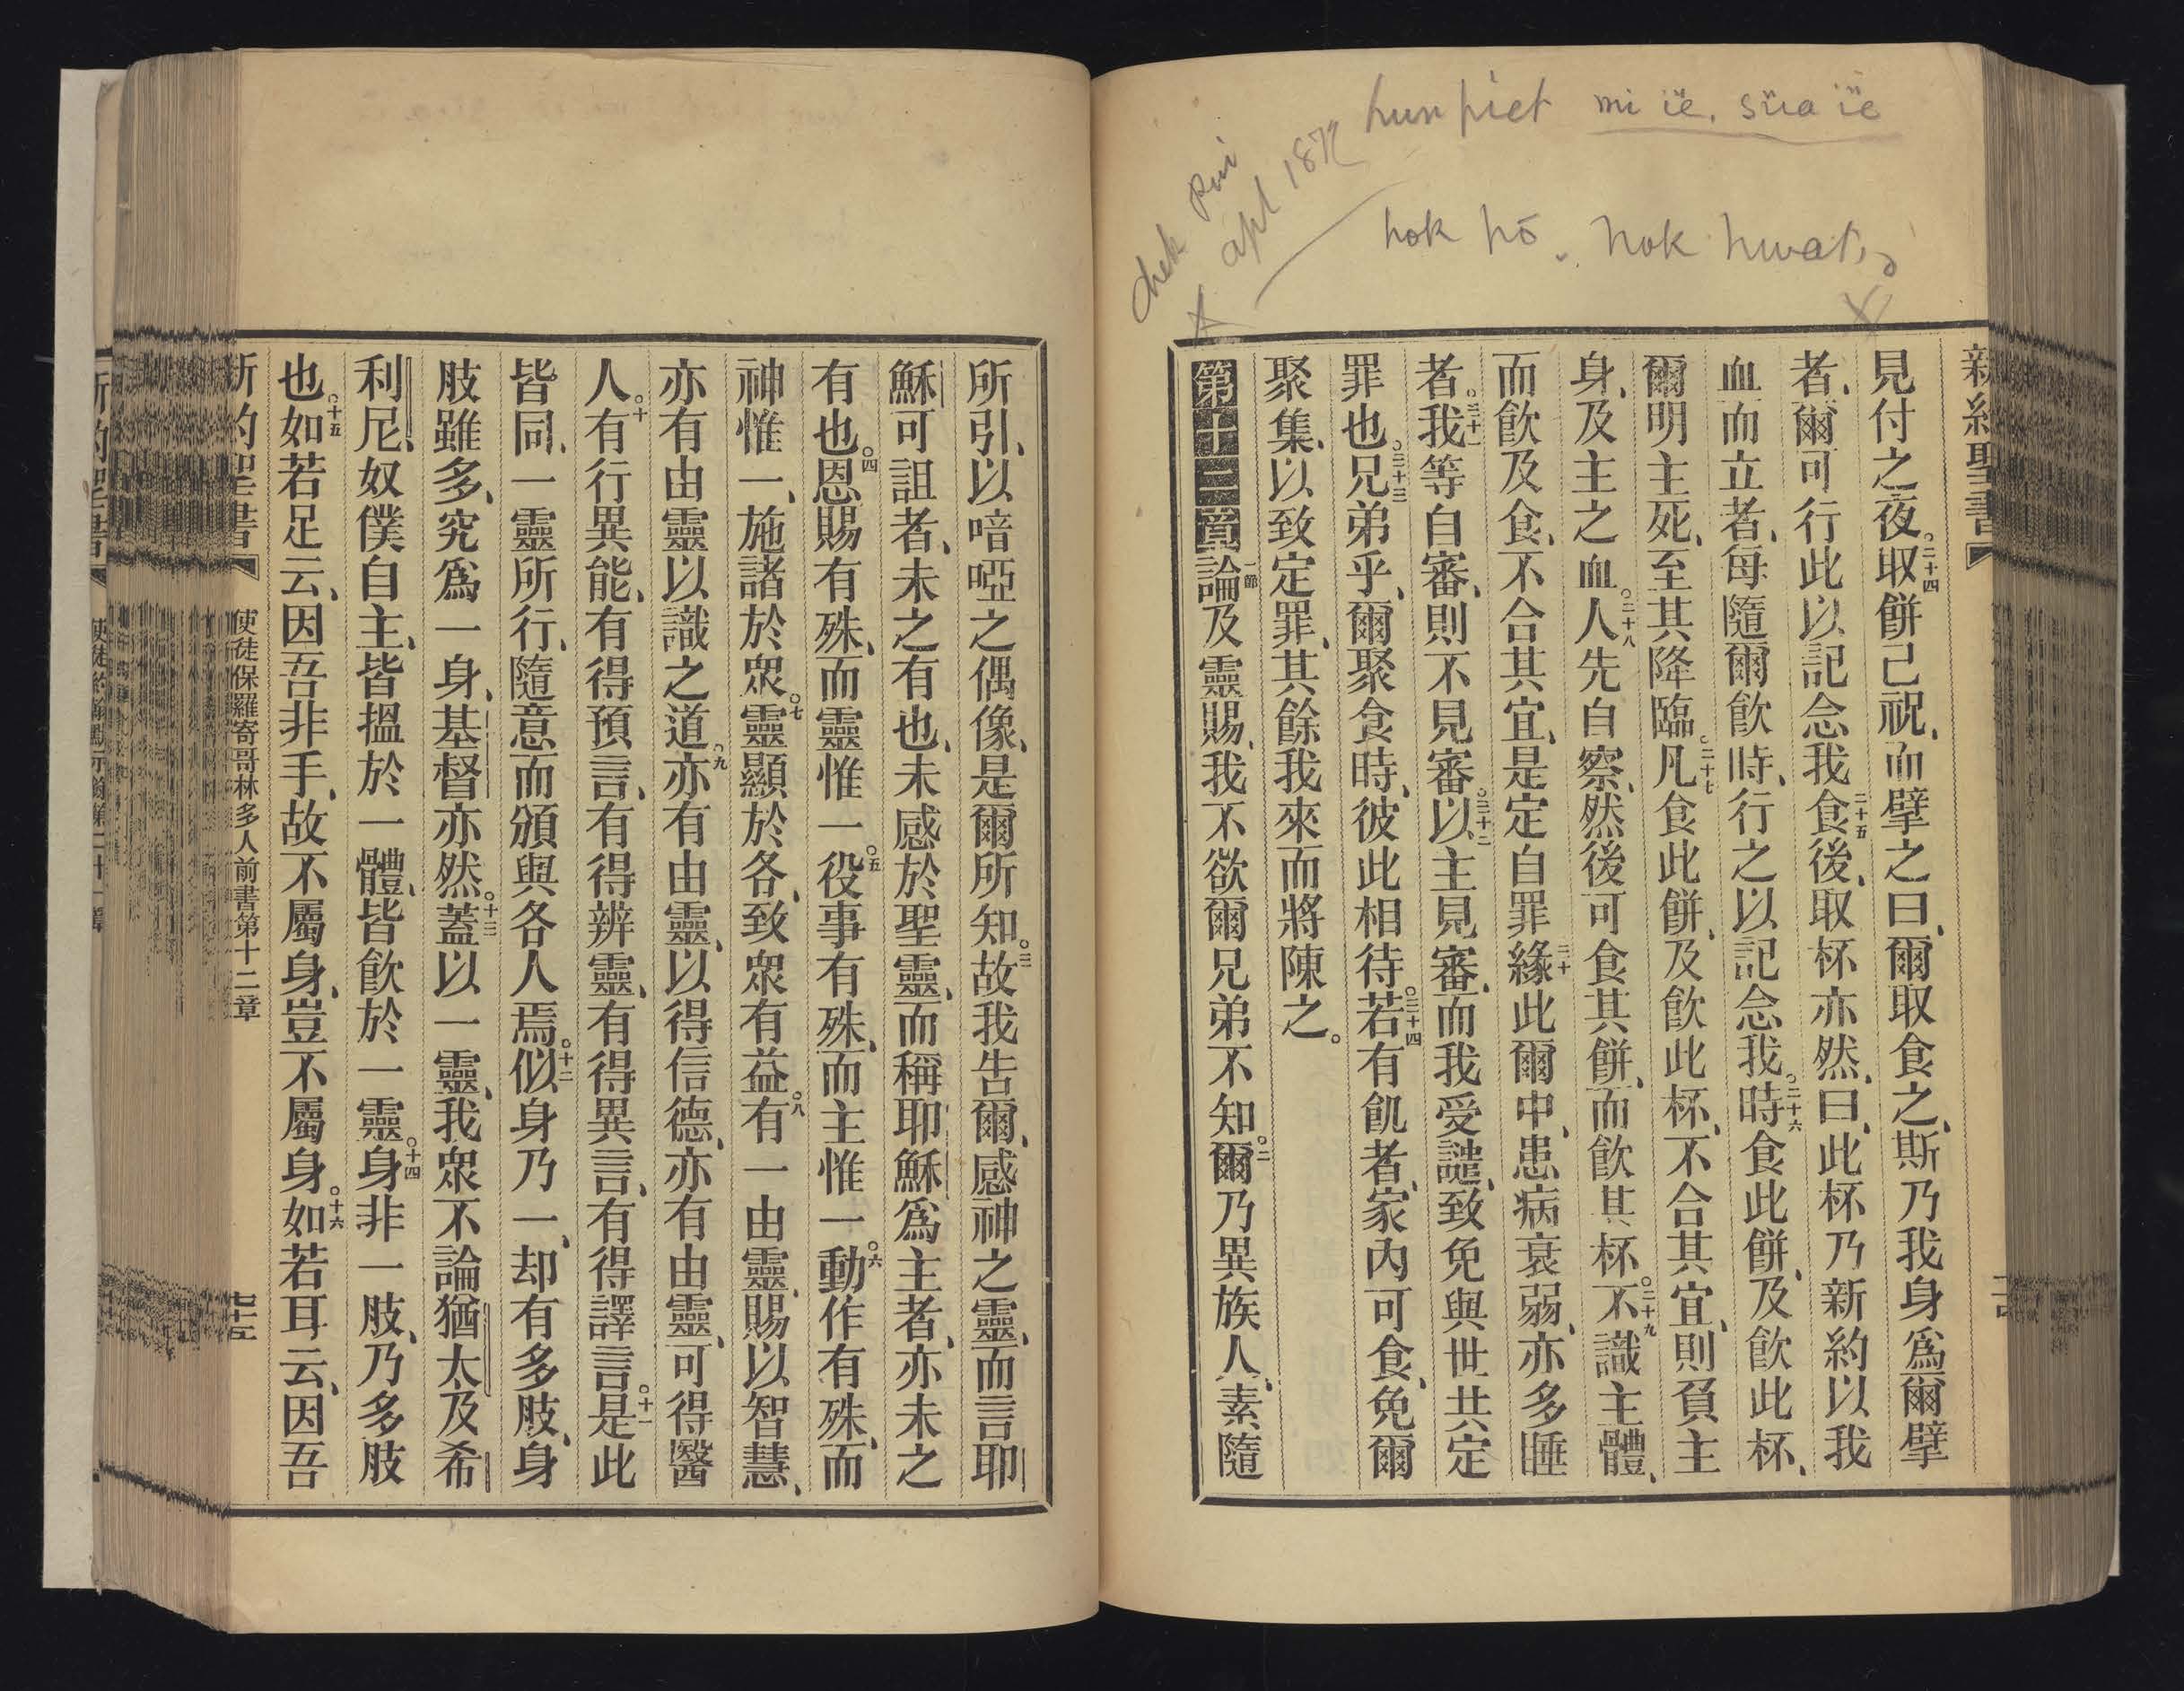 hun piet mi ië. süa ië
chek pui
apl 1872
hok hō. hok hwat,
新約聖書
見付之夜。二十四取餅己祝、而擘之曰、爾取食之、斯乃我身爲爾擘
者、爾可行此以記念我二十五食後、取杯亦然、曰、此杯乃新約以我
血而立者、每隨爾飲時、行之以記念我。二十六時食此餅、及飲此杯、
爾明主死、至其降臨。二十七凡食此餅、及飲此杯、不合其宜、則負主
身、及主之血。二十八人先自察、然後可食其餅、而飲其杯。二十九不識主體、
而飲及食、不合其宜、是定自罪三十緣此爾中、患病衰弱、亦多睡
者。三十一我等自審、則不見審。三十二以主見審、而我受譴、致免與世共定
罪也。三十三兄弟乎、爾聚食時、彼此相待。三十四若有飢者、家內可食、免爾
聚集、以致定罪、其餘我來而將陳之。
第十二章一節論及靈賜、我不欲爾兄弟不知。二爾乃異族人、素隨
所引、以喑啞之偶像、是爾所知。三故我吿爾、感神之靈、而言耶
穌可詛者、未之有也、未感於聖靈、而稱耶穌爲主者、亦未之
有也。四恩賜有殊、而靈惟一。五役事有殊、而主惟一。六動作有殊、而
神惟一、施諸於眾。七靈顯於各、致眾有益。八有一由靈、賜以智慧、
亦有由靈以識之道。九亦有由靈、以得信德、亦有由靈、可得醫
人。十有行異能、有得預言、有得辨靈、有得異言、有得譯言。十一是此
皆同、一靈所行、隨意而頒與各人焉。十二似身乃一、却有多肢、身
肢雖多、究爲一身、基督亦然。十三蓋以一靈、我眾不論猶太及希
利尼、奴僕自主、皆搵於一體、皆飲於一靈。十四身非一肢、乃多肢
也。十五如若足云、因吾非手、故不屬身、豈不屬身。十六如若耳云、因吾
新約聖書 使徒保羅寄哥林多人前書第十二章 七十五